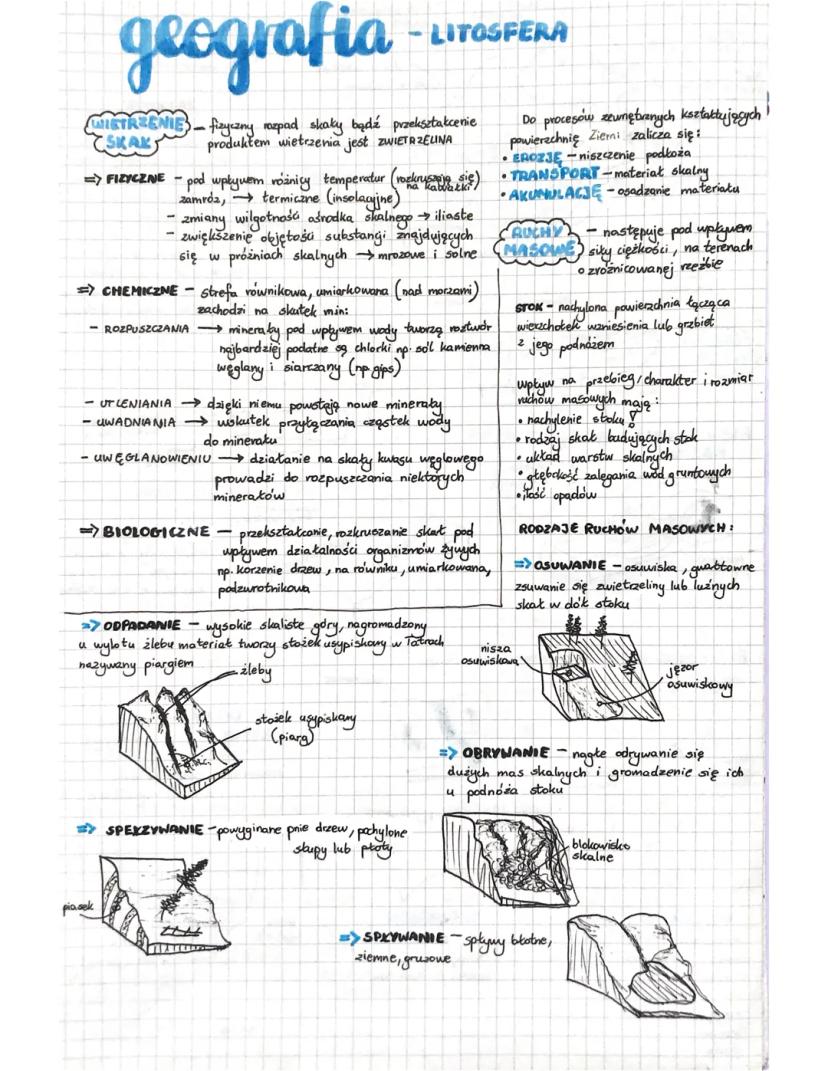 geografia - LITOSFERA
WIETRZENIE SKAŁ – fizyczny rozpad skały bądź przekształcenie
produktem wietrzenia jest ZWIETRZELINA
=> FIZYCZNE – pod wpływem różnicy temperatur (rozkruszają się)
na kawałki
zamróz, → termiczne (insolacyjne)
– zmiany wilgotności ośrodka skalnego → ilaste
– zwiększenie objętości substancji znajdujących
się w próżniach skalnych → mrozowe i solne
=> CHEMICZNE – strefa równikowa, umiarkowana (nad morzami)
zachodzi na skutek min:
– ROZPUSZCZANIA → minerały pod wpływem wody tworzą roztwór
najbardziej podatne są chlorki np. sól kamienna
węglany i siarczany (np. gips)
– UTLENIANIA → dzięki niemu powstają nowe minerały
– UWADNIANIA → wskutek przyłączania cząstek wody
do minerału
– UWĘGLANOWIENIU → działanie na skały kwasu węglowego
prowadzi do rozpuszczania niektórych
minerałów
=> BIOLOGICZNE – przekształcanie, rozkruszanie skał pod
wpływem działalności organizmów żywych
np. korzenie drzew, na równiku, umiarkowana,
podzwrotnikowa
Do procesów zewnętrznych kształtujących
powierzchnię Ziemi zalicza się:
• EROZJĘ – niszczenie podłoża
• TRANSPORT – materiał skalny
• AKUMULACJĘ – osadzanie materiału
RUCHY MASOWE – następuje pod wpływem
siły ciężkości, na terenach
o zróżnicowanej rzeźbie
STOK – nachylona powierzchnia łącząca
wierzchołek wzniesienia lub grzbiet
z jego podnóżem
Wpływ na przebieg/charakter i rozmiar
ruchów masowych mają:
• nachylenie stoku!
• rodzaj skał budujących stok
• układ warstw skalnych
• głębokość zalegania wód gruntowych
• ilość opadów
RODZAJE RUCHÓW MASOWYCH:
=> OSUWANIE – osuwiska, gwałtowne
zsuwanie się zwietrzeliny lub luźnych
skał w dół stoku
nisza
osuwiskowa
jęzor
osuwiskowy
=> ODPADANIE – wysokie skaliste góry, nagromadzony
u wylotu żlebu materiał tworzy stożek usypiskowy w Tatrach
nazywany piargiem
żleby
stożek usypiskowy
(piarg)
=> OBRYWANIE – nagłe odrywanie się
dużych mas skalnych i gromadzenie się ich
u podnóża stoku
blokowisko
skalne
=> SPEŁZYWANIE – powyginane pnie drzew, pochylone
słupy lub płoty
piasek
=> SPŁYWANIE – spływy błotne,
ziemne, gruzowe